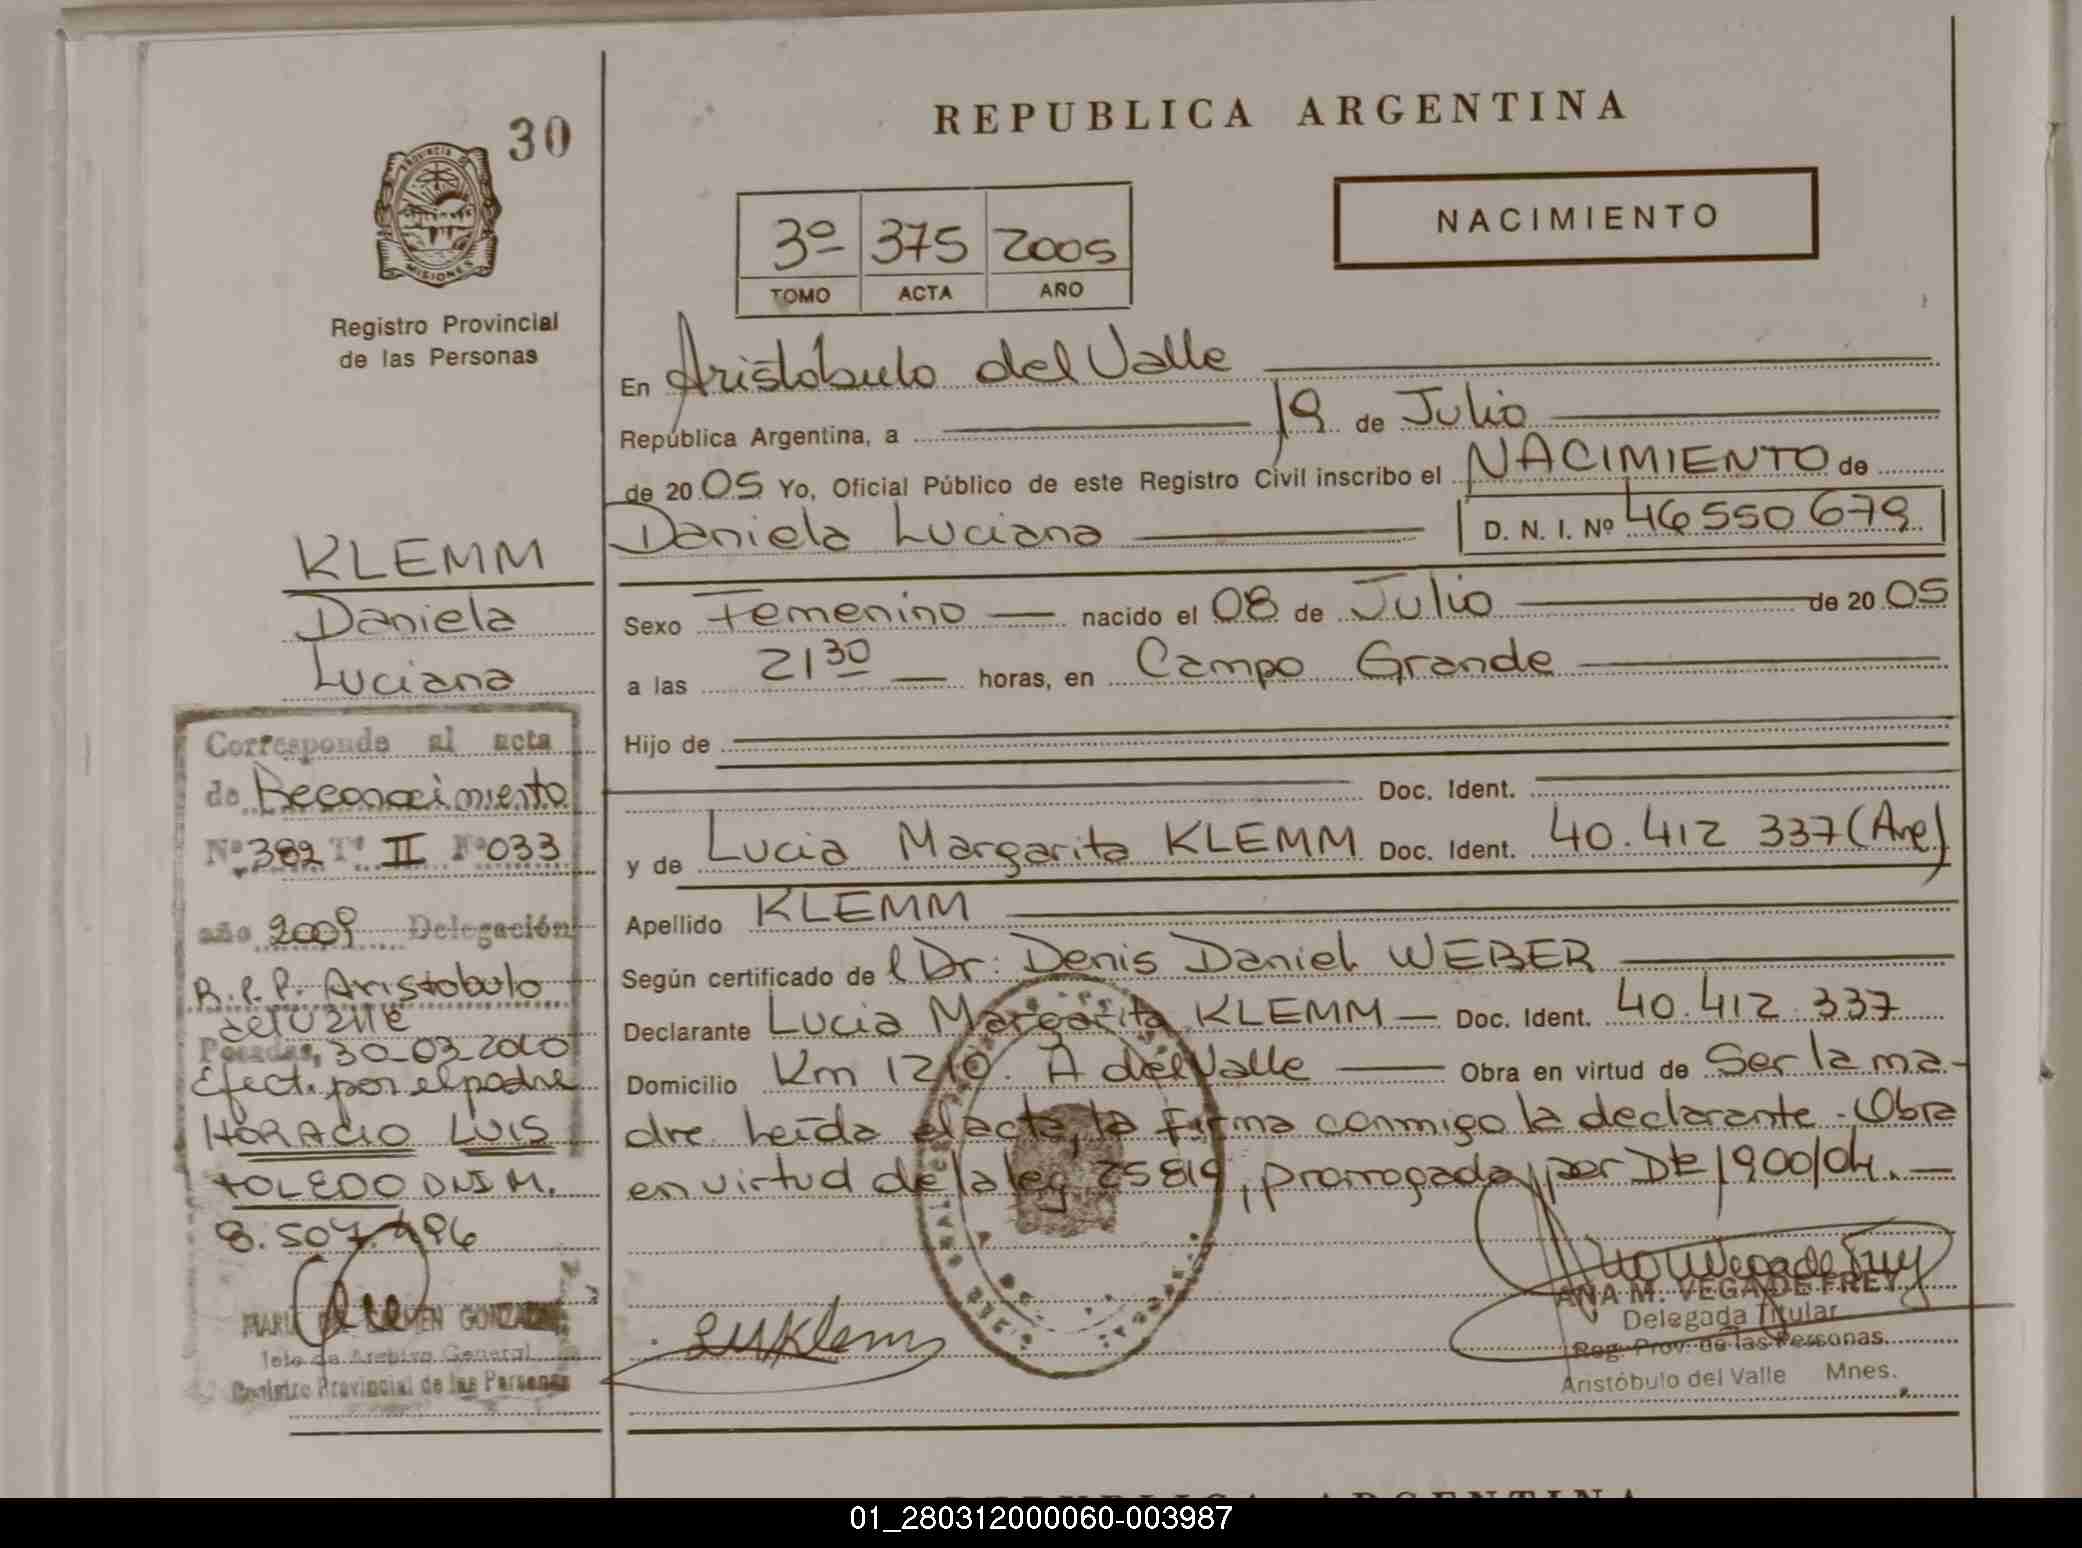 30
PROVINCIA DE
MISIONES
Registro Provincial
de las Personas
REPUBLICA ARGENTINA
NACIMIENTO
3º 375 2005
TOMO ACTA AÑO
En Aristóbulo del Valle
República Argentina, a 19 de Julio
de 2005 Yo, Oficial Público de este Registro Civil inscribo el NACIMIENTO de
Daniela Luciana D. N. I. Nº 46550679
Sexo Femenino nacido el 08 de Julio de 2005
a las 21 30 horas, en Campo Grande
Hijo de
Doc. Ident.
y de Lucia Margarita KLEMM Doc. Ident. 40.412 337 (Arg)
Apellido KLEMM
Según certificado de l Dr: Denis Daniel WEBER
Declarante Lucia Margarita KLEMM Doc. Ident. 40.412.337
Domicilio Km 1210. A del Valle Obra en virtud de Ser la ma-
dre leída el acta, la firma conmigo la declarante. Obra
en virtud de la ley 25819, prorrogada por Dto 1900/04.
KLEMM
Daniela
Luciana
Corresponde al acta
de Reconocimiento
Nº 382 Tº II Fº 033
año 2009 Delegación
R.P.P. Aristobulo
del Valle
Posadas, 30-03-2010
Efect. por el padre
HORACIO LUIS
TOLEDO DNI M.
8.507.496
MARIA DEL CARMEN GONZALEZ
Jefe de Archivo General
Registro Provincial de las Personas
ANA M. VEGA DE FREY
Delegada Titular
Reg. Prov. de las Personas
Aristóbulo del Valle Mnes.
REPUBLICA ARGENTINA
01_280312000060-003987